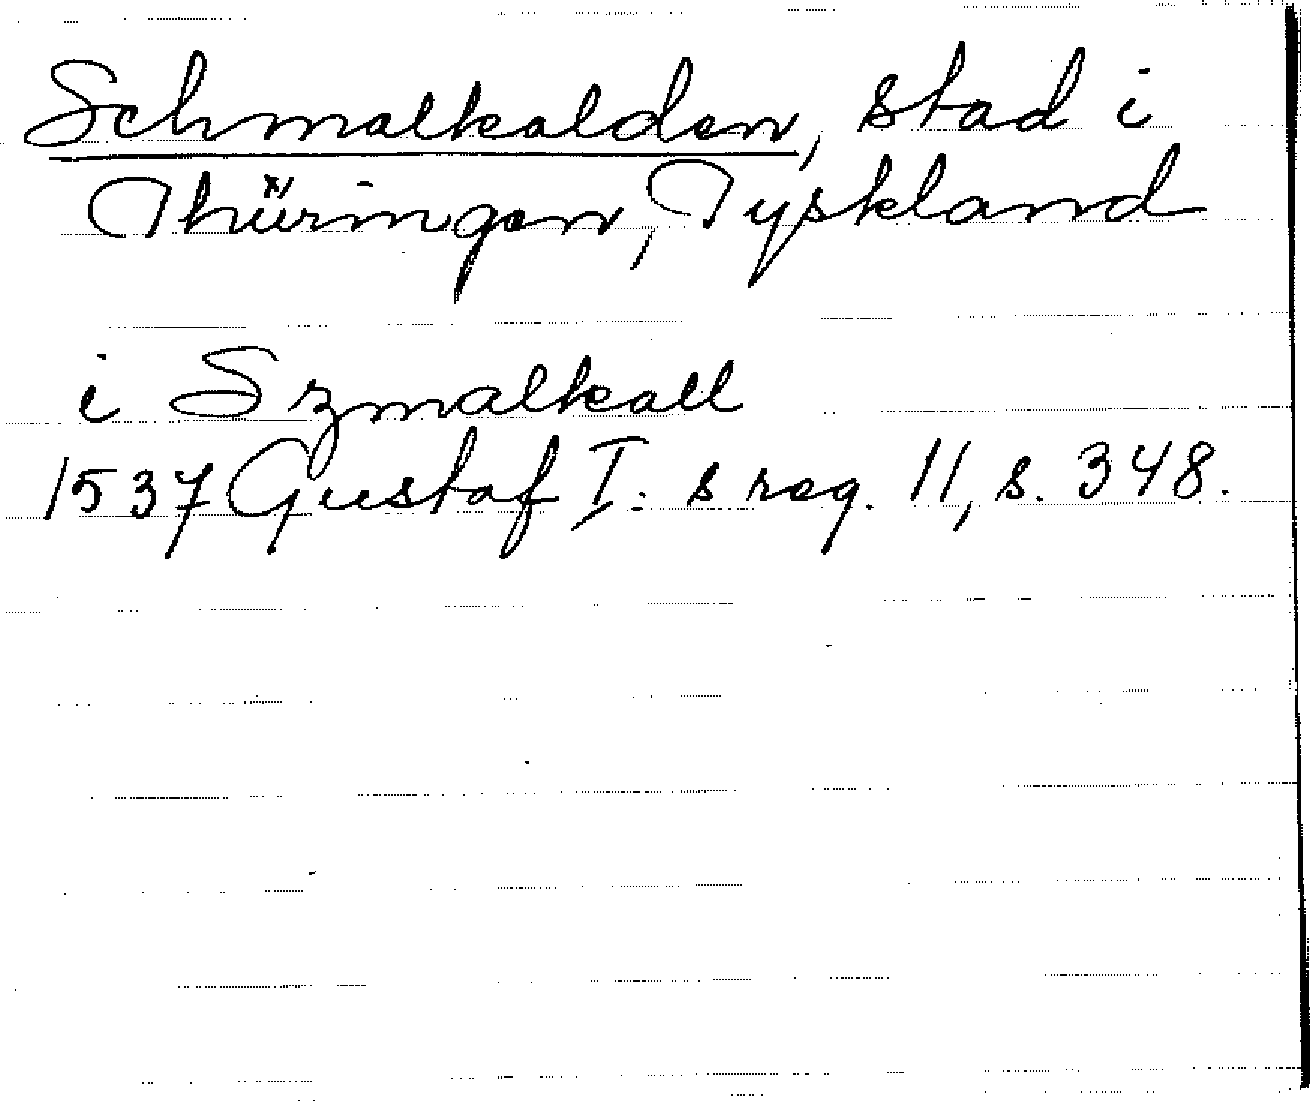 Schmalkalden, stad i
Thüringen, Tyskland
i Szmalkall
1537 Gustaf I:s reg. 11, s. 348.